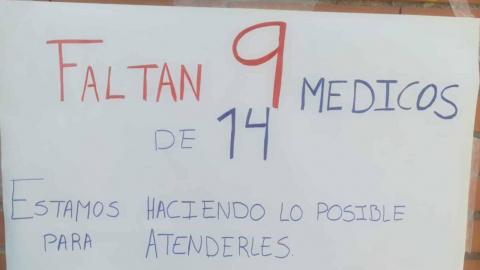 FALTAN 9 MEDICOS
DE 14
ESTAMOS HACIENDO LO POSIBLE
PARA ATENDERLES.